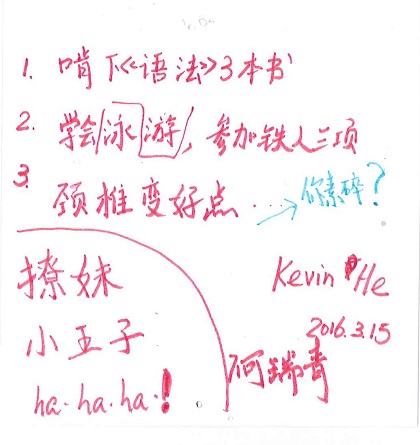 1. 啃下《语法》3本书
2. 学会泳游, 参加铁人三项
3. 颈椎变好点...
你素碎?
撩妹
小王子
ha.ha.ha.!
Kevin He
2016.3.15